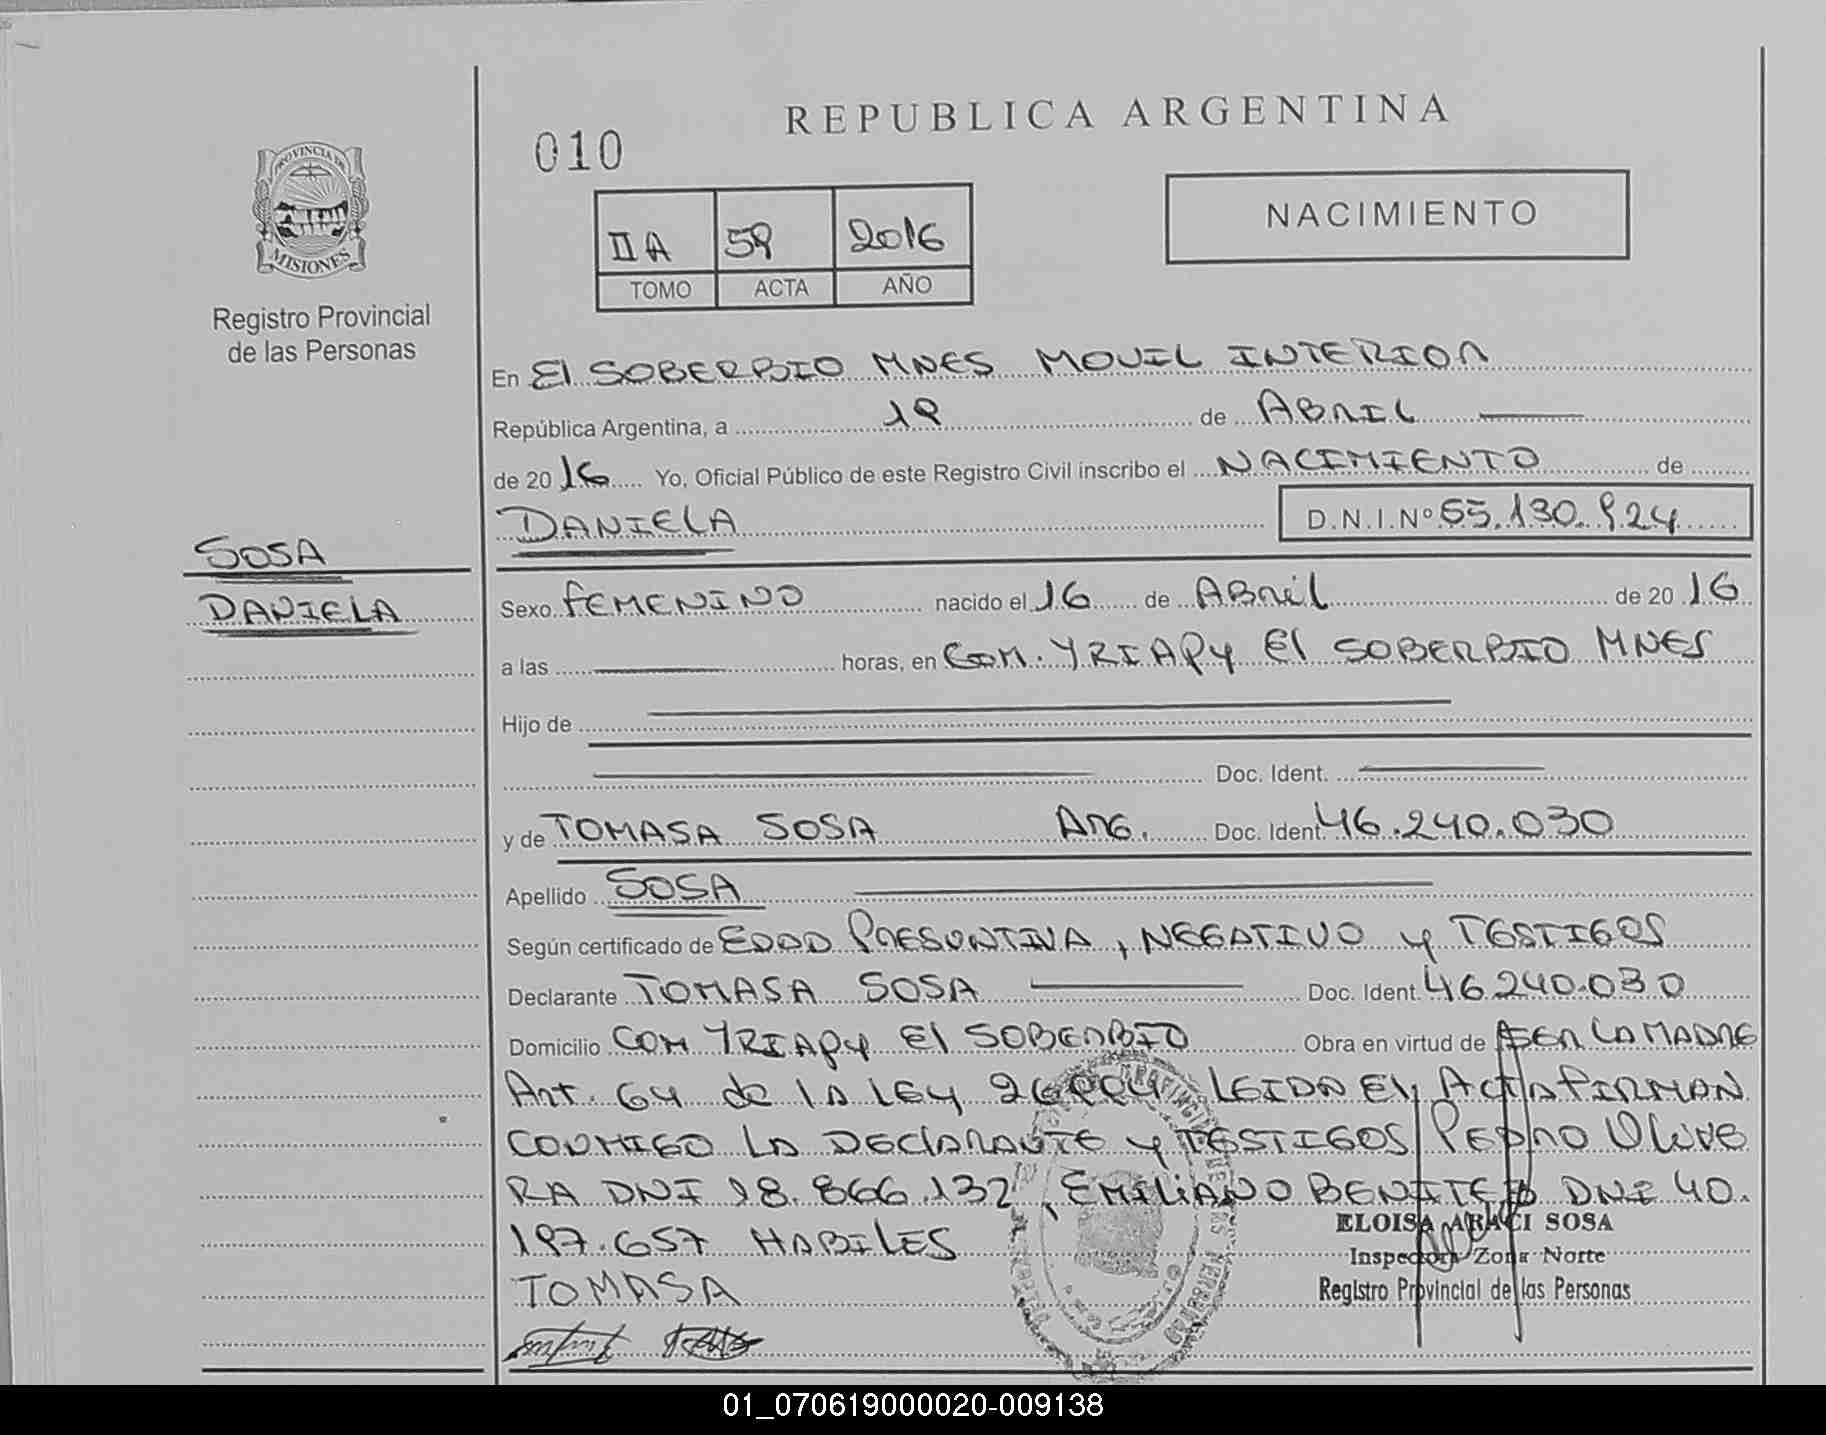 REPUBLICA ARGENTINA
010
NACIMIENTO
II A 59 2016
TOMO ACTA AÑO
PROVINCIA DE
MISIONES
Registro Provincial
de las Personas
En El SOBERBIO MNES MOVIL INTERIOR
República Argentina, a 19 de ABRIL
de 2016 Yo, Oficial Público de este Registro Civil inscribo el NACIMIENTO de
DANIELA D.N.I.Nº 55.130.924
SOSA
DANIELA
Sexo FEMENINO nacido el 16 de ABRIL de 2016
a las horas, en COM. YRIAPY El SOBERBIO MNES
Hijo de
Doc. Ident.
y de TOMASA SOSA ARG. Doc. Ident. 46.240.030
Apellido SOSA
Según certificado de EDAD PRESUNTIVA, NEGATIVO y TESTIGOS
Declarante TOMASA SOSA Doc. Ident. 46.240.030
Domicilio COM YRIAPY El SOBERBIO Obra en virtud de SER LA MADRE
Art. 64 de la LEY 26994 LEIDA El ACTA FIRMAN
CONMIGO LA DECLARANTE y TESTIGOS PEDRO OLIVE
RA DNI 18.866.132, EMILIANO BENITEZ DNI 40.
197.657 HABILES
ELOISA ARACI SOSA
Inspectora Zona Norte
Registro Provincial de las Personas
TOMASA
01_070619000020-009138